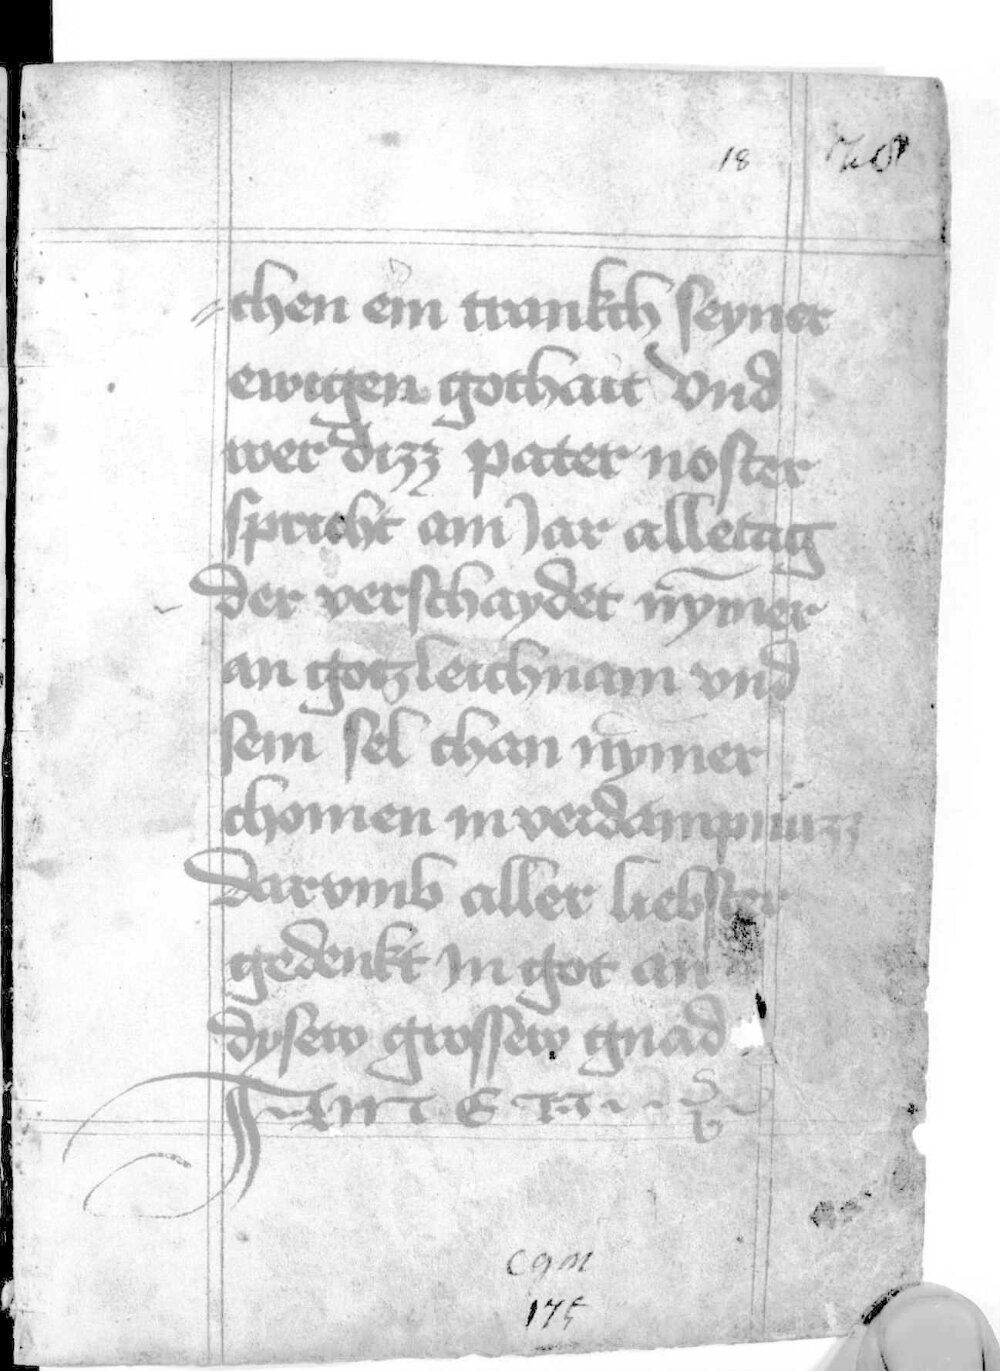 18
-chen ein trankch seyner
ewigen gothait vnd
wer dizz pater noster
spricht am Jar alletag
der verschaydet nȳmer
an gotzleichnam vnd
sein sel chan nȳmer
chomen in verdampnuzz
Darvmb aller liebster
gedenkt in got an
dysew grossew gnad
cgm
175